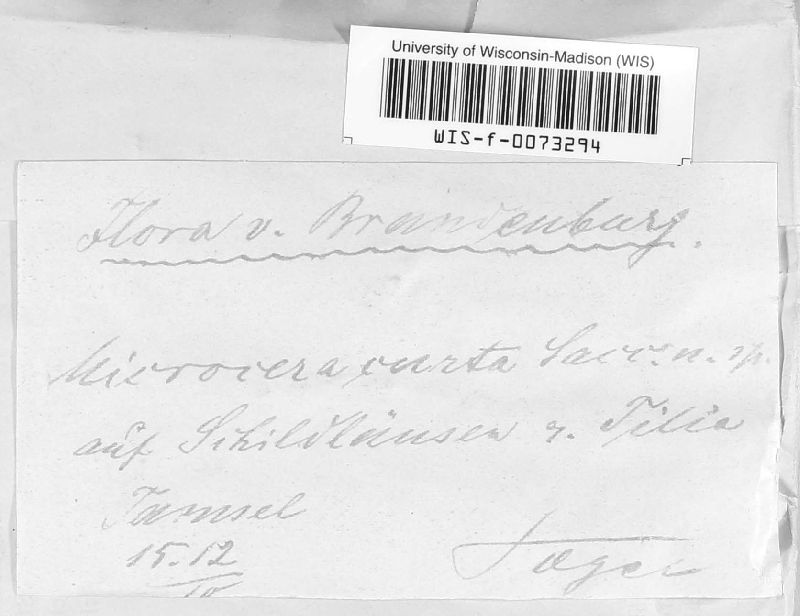 University of Wisconsin-Madison (WIS)
WIS-f-0073294
Flora v. Brandenburg.
Microcera curta Sacc. n. sp.
auf Schildläusen a. Tilia
Tamsel
15.